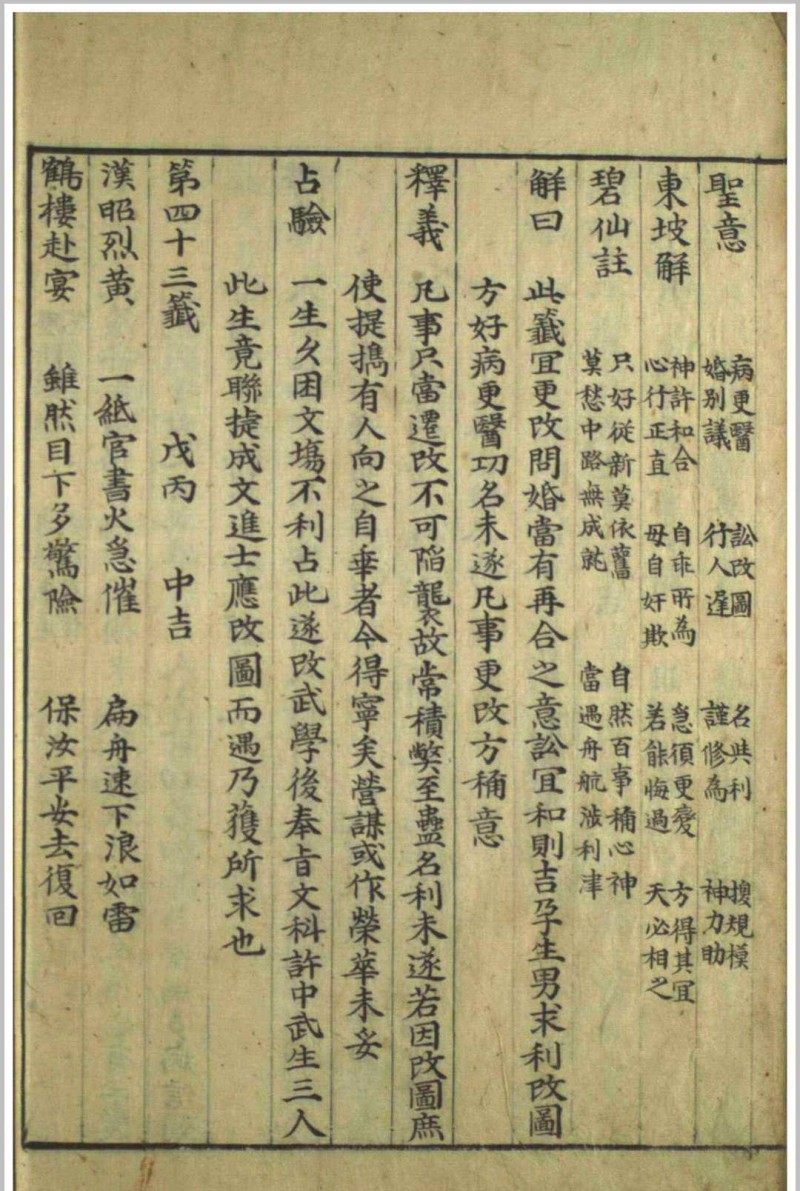 聖意　病更醫　訟改圖　名與利　換規模
婚別議　行人遲　謹修為　神力助
東坡解　神許和合　自乖所為　急須更變　方得其宜
心行正直　毋自奸欺　若能悔過　天必相之
碧仙註　只好從新莫依舊　自然百事稱心神
莫愁中路無成就　當遇舟航涉利津
解曰　此籤宜更改問婚當有再合之意訟宜和則吉孕生男求利改圖
方好病更醫功名未遂凡事更改方稱意
釋義　凡事只當遷改不可陷襲故常積弊至蠱名利未遂若因改圖庶
使提撝有人向之自乖者今得寧矣營謀或作榮華未妥
占驗　一生久困文塲不利占此遂改武學後奉旨文科許中武生三人
此生竟聯捷成文進士應改圖而遇乃獲所求也
第四十三籤　戊丙　中吉
漢昭烈黄　一紙官書火急催　扁舟速下浪如雷
鶴樓赴宴　雖然目下多驚險　保汝平安去復回